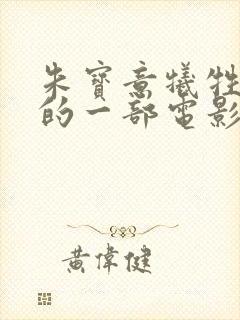 朱寶意犧牲
的一部電影
黃偉健